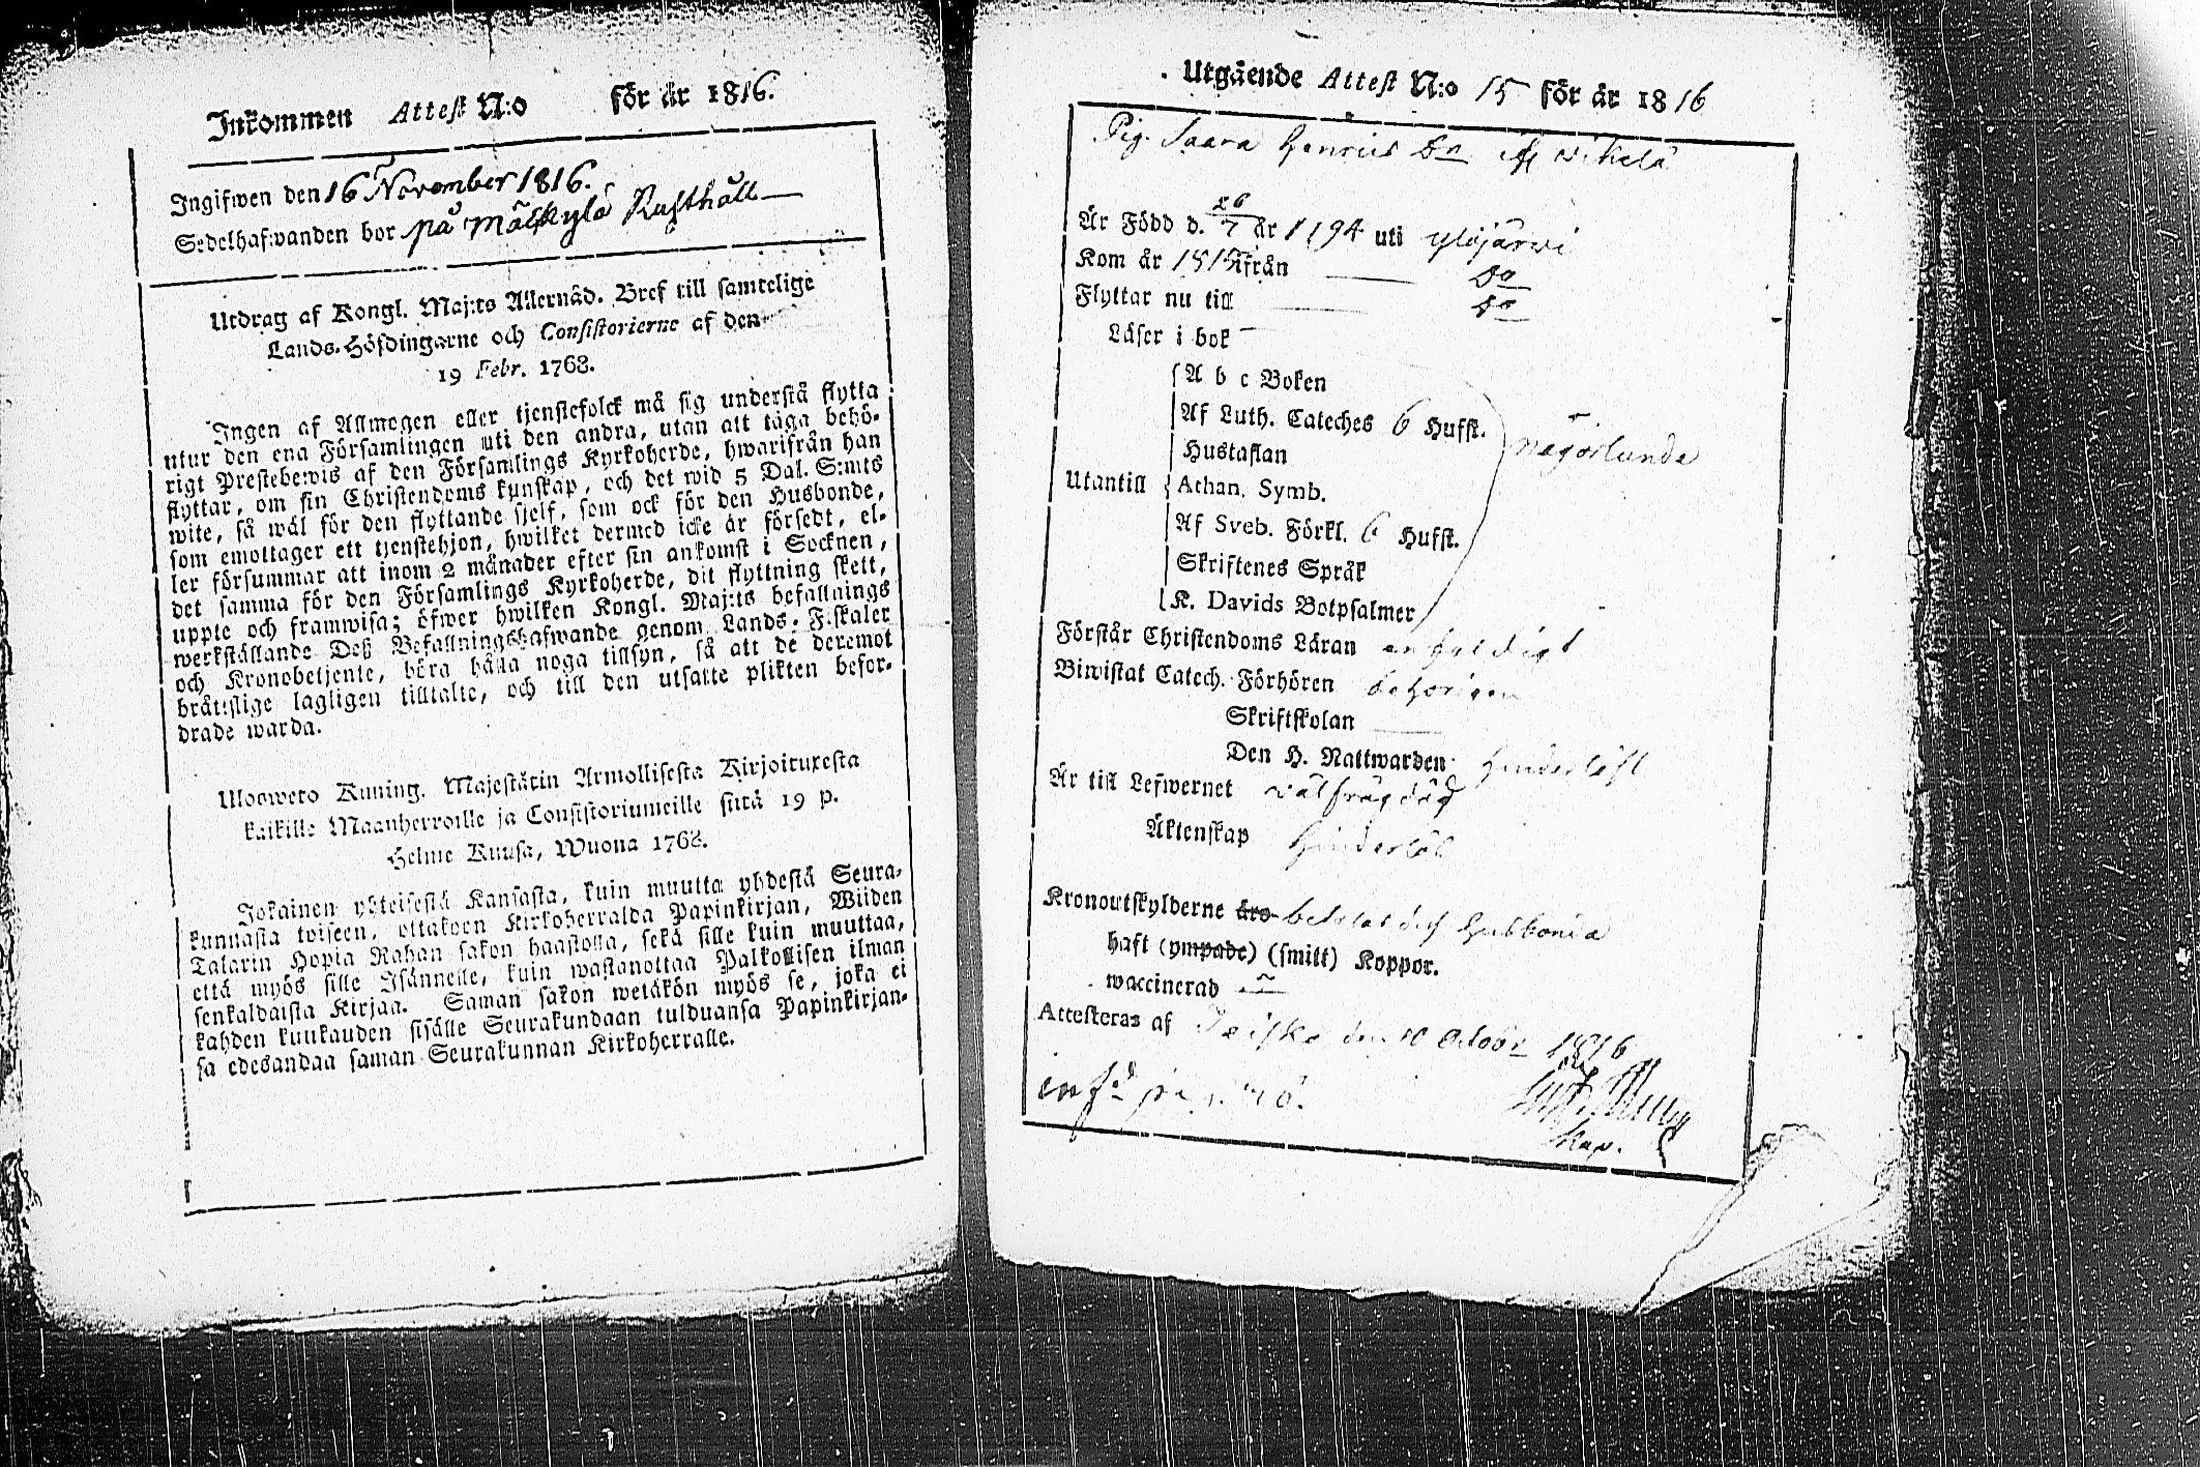 Inkommen Attest N:o för år 1816.
Ingifwen den 16 November 1816.
Sedelhafwanden bor på Mälkylä Rusthåll
Utdrag af Kongl. Maj:ts Allernåd. Bref till samtelige
Lands-Höfdingarne och Consistorierne af den
19 Febr. 1768.
Ingen af Allmogen eller tjenstefolck må sig understå flytta
utur den ena Församlingen uti den andra, utan att taga behö-
rigt Prestebewis af den Församlings Kyrkoherde, hwarifrån han
flyttar, om sin Christendoms kunskap, och det wid 5 Dal. S:mts
wite, så wäl för den flyttande sjelf, som ock för den Husbonde,
som emottager ett tjenstehjon, hwilket dermed icke är försedt, el-
ler försummar att inom 2 månader efter sin ankomst i Socknen,
det samma för den Församlings Kyrkoherde, dit flyttning skett,
uppte och framwisa; öfwer hwilken Kongl. Maj:ts befallnings
werkställande Deß Befallningshafwande genom Lands-Fiskaler
och Kronobetjente, böra hålla noga tillsyn, så att de deremot
bråttslige lagligen tilltalte, och till den utsatte plikten befor-
drade warda.
Ulosweto Kuning. Majestätin Armollisesta Kirjoituxesta
kaikille Maanherroille ja Consistoriumeille siitä 19 p.
Helme Kuusa, Wuona 1768.
Jokainen yhteisestä Kansasta, kuin muutta yhdestä Seura-
kunnasta toiseen, ottakoon Kirkoherralda Papinkirjan, Wiiden
Talarin Hopia Rahan sakon haastolla, sekä sille kuin muuttaa,
että myös sille Isännelle, kuin wastanottaa Palkollisen ilman
senkaldaista Kirjaa. Saman sakon wetäkön myös se, joka ei
kahden kuukauden sisälle Seurakundaan tulduansa Papinkirjan-
sa edesandaa saman Seurakunnan Kirkoherralle.
Utgående Attest N:o 15 för år 1816
Pig. Saara Henrics Dr
Är Född d. 26/7 år 1794 uti Ylöjärwi
Kom år 1815 ifrån Do
Flyttar nu till Do
Läser i bok
A b c Boken
Af Luth. Cateches 6 Hufst.
Hustaflan
någorlunda
Utantill Athan. Symb.
Af Sveb. Förkl. 6 Hufst.
Skriftenes Språk
K. Davids Botpsalmer
Förstår Christendoms Läran enfaldigt
Biwistat Catech. Förhören behörigen
Skriftskolan
Den H. Nattwarden hinderlöst
Är till Lefwernet wälfrägdad
Äktenskap hinderlös
Kronoutskylderne äro betalat och
haft (ympade) (smitt) Koppor.
waccinerad
Attesteras af Teisko den 10 Octobr 1816
Kap.